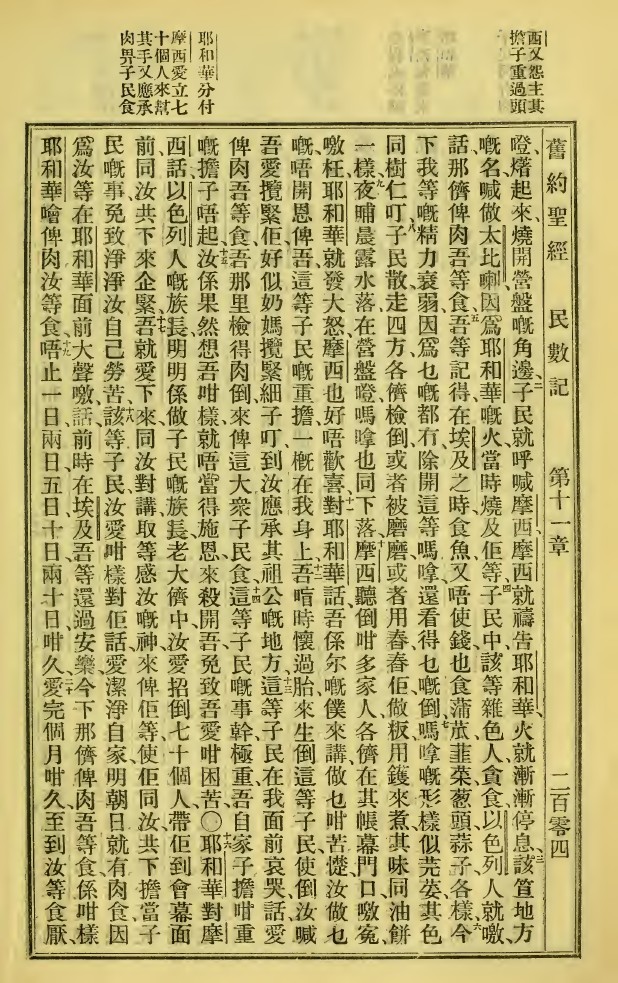 西又怨主其
擔子重過頭
耶和華分付
摩西愛立七
十個人來幫
其手又應承
肉畀子民食
舊約聖經 民數記 第十一章 二百零四
噔㷮起來、燒開營盤嘅角邊、二子民就呼喊摩西、摩西就禱告耶和華、火就漸漸停息、三該笪地方
嘅名喊做太比喇、因爲耶和華嘅火當時燒及佢等、四子民中該等雜色人貪食、以色列人就噭、
話、那儕俾肉吾等食、五吾等記得在埃及之時食魚、又唔使錢、也食蒲蓏韮菜葱頭蒜子各樣、六今
下我等嘅精力衰弱、因爲乜嘅都冇、除開這等嗎嗱、還看得乜嘅倒、七嗎嗱嘅形樣似芫荽、其色
同樹仁叮、八子民散走四方、各儕檢倒、或者被磨磨、或者用舂舂佢做粄、用鑊來煮、其味同油餅
一樣、九夜晡晨露水落在營盤噔、嗎嗱也同下落、十摩西聽倒咁多家人、各儕在其帳幕門口噭寃
噭枉、耶和華就發大怒、摩西也好唔歡喜、十一對耶和華話、吾係尔嘅僕來講、做乜咁苦㦬、汝做乜
嘅唔開恩俾吾、這等子民嘅重擔、一槪在我身上、十二吾唷時懷過胎來生倒這等子民、使倒汝喊
吾愛攬緊佢好似奶媽攬緊細子叮、到汝應承其祖公嘅地方、十三這等子民在我面前哀哭、話愛
俾肉吾等食、吾那里檢得肉倒來俾這大衆子民食、十四這等子民嘅事幹極重、吾自家子擔咁重
嘅擔子唔起、十五汝係果然想吾咁樣、就唔當得施恩來殺開吾、免致吾愛咁困苦、〇十六耶和華對摩
西話、以色列人嘅族長、明明係做子民嘅族長老大儕中、汝愛招倒七十個人、帶佢到會幕面
前、同汝共下來企緊、十七吾就愛下來、同汝對講、取等感汝嘅神來俾佢等、使佢同汝共下擔當子
民嘅事、免致淨淨汝自己勞苦、十八該等子民、汝愛咁樣對佢話、愛潔淨自家、明朝日就有肉食、因
爲汝等在耶和華面前大聲噭、話、前時在埃及吾等還過安樂、今下那儕俾肉吾等食、係咁樣
耶和華噲俾肉汝等食、十九唔止一日兩日五日十日兩十日咁久、二十愛完個月咁久、至到汝等食厭、